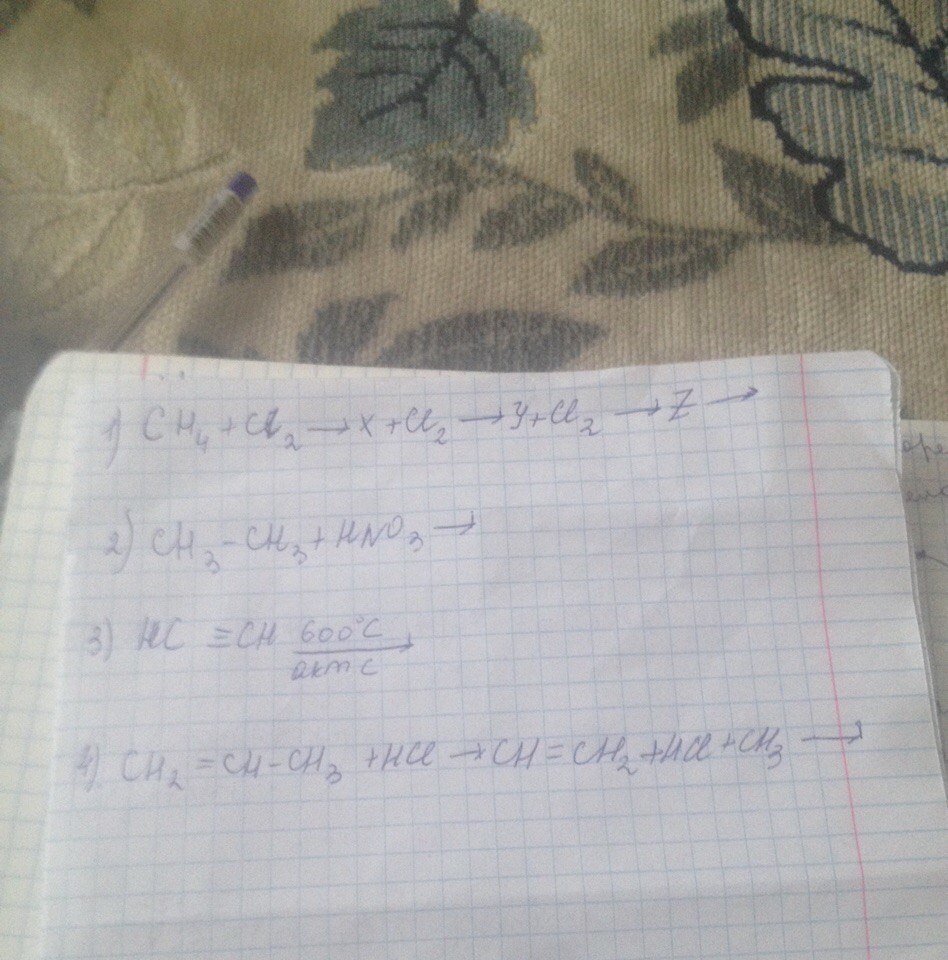 1) CH₄ + Cl₂ → X + Cl₂ → У + Cl₂ → Z →
2) CH₃ – CH₃ + HNO₃ →
3) HC ≡ CH 600°C акт C →
4) CH₂ = CH – CH₃ + HCl → CH = CH₂ + HCl + CH₃ →